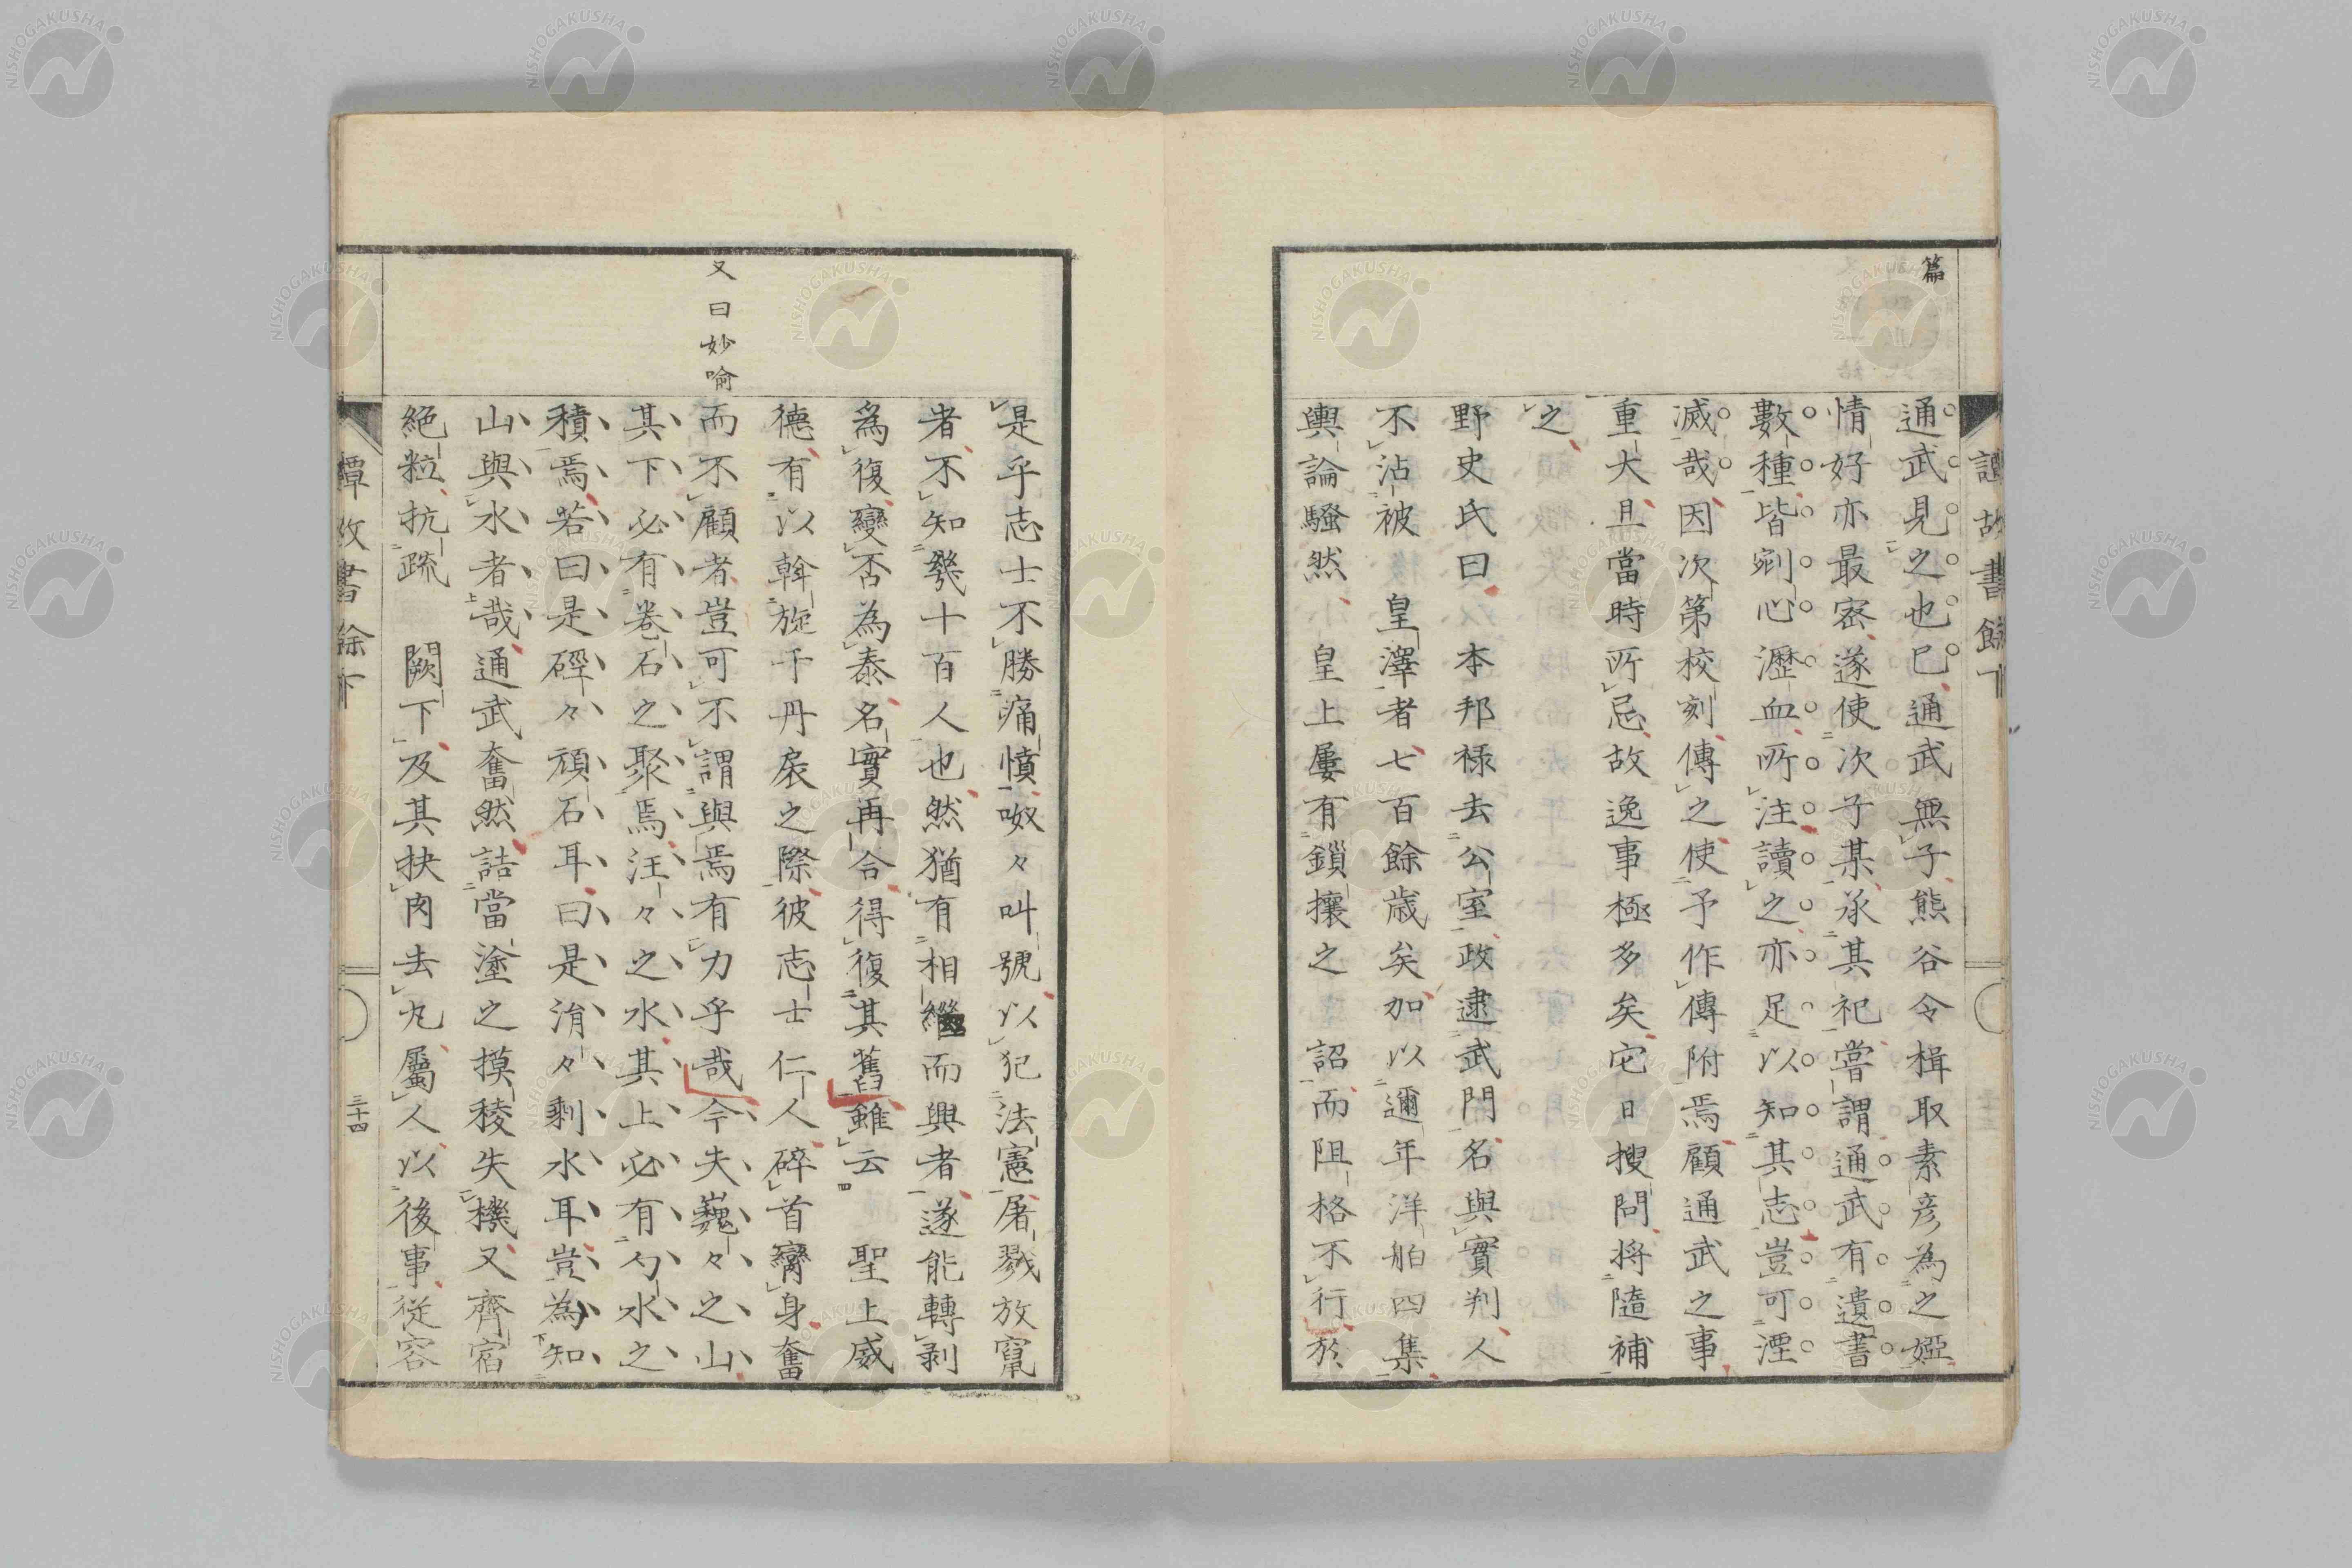 篇
通武見之也已通武無子熊谷令楫取素彦為之婭
情好亦最密遂使次子某承其祀嘗謂通武有遺書
數種皆剜心瀝血所注讀之亦足以知其志豈可湮
滅哉因次第校刻傳之使予作傳附焉顧通武之事
重大且當時所忌故逸事極多矣它日搜問將隨補
之
野史氏曰 本邦祿去公室政逮武門名與實判人
不沾被 皇澤者七百餘歲矣加以邇年洋舶四集
輿論騷然 皇上屢有鎖攘之 詔而阻格不行於
是乎志士不勝痛憤呶々叫號以犯法憲屠戮放竄
者不知幾十百人也然猶有相繼而興者遂能轉剥
為復變否為泰名實再合得復其舊雖云 聖上威
德有以斡旋于丹扆之際彼志士仁人碎首臠身奮
又曰妙喻
而不顧者豈可不謂與焉有力乎哉今夫巍々之山
其下必有卷石之聚焉汪々之水其上必有勺水之
積焉若曰是硜々頑石耳曰是涓々剩水耳豈為知
山與水者哉通武奮然詰當塗之摸稜失機又齊宿
絕粒抗疏 闕下及其抉肉去丸屬人以後事從容
三十四
NISHOGAKUSHA